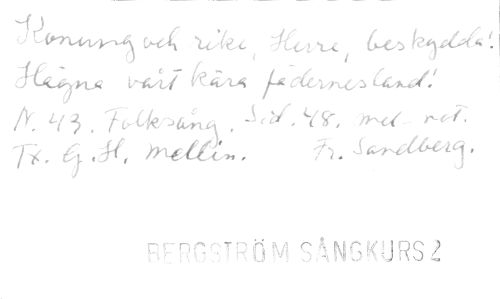 Konung och rike, Herre, beskydda!
Hägna vårt kära fädernesland!
N. 43. Folksång. Sid. 48. mel-not.
Tx. G. H. Mellin. Fr. Sandberg.
BERGSTRÖM SÅNGKURS 2